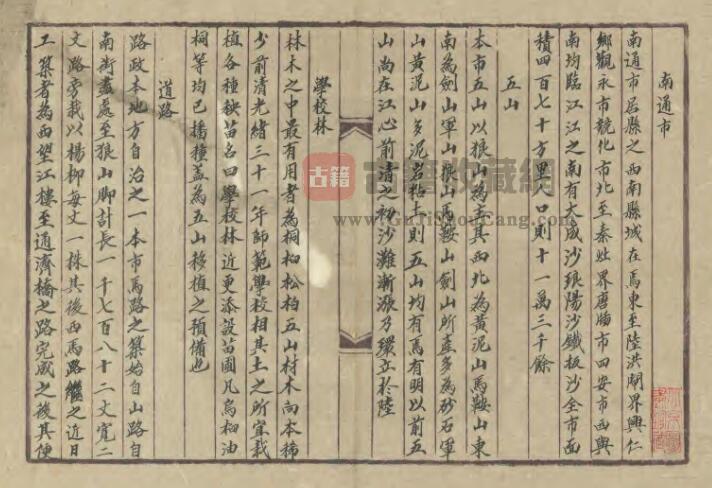 南通市
南通市居縣之西南縣城在焉東至陸洪閘界興仁
鄉觀永市競化市北至秦灶界唐閘市四安市西與
南均臨江江之南有大成沙琅陽沙鐵板沙全市面
積四百七十方里人口則十一萬三千餘
五山
本市五山以狼山為主其西北為黃泥山馬鞍山東
南為劍山軍山狼山馬鞍山劍山所產多為砂石軍
山黃泥山多泥岩粘土則五山均有焉有明以前五
山尚在江心前清之初沙灘漸漲乃環立於陸
學校林
林木之中最有用者為桐桕松柏五山材木向本稀
少前清光緒三十一年師範學校相其土之所宜栽
植各種秧苗名曰學校林近更添設苗圃凡烏桕油
桐等均已播種蓋為五山移植之預備也
道路
路政本地方自治之一本市馬路之築始自山路自
南街盡處至狼山腳計長一千七百八十二丈寬二
丈路旁栽以楊柳每丈一株其後西馬路繼之近日
工築者為西望江樓至通濟橋之路完成之後其便
古籍
古籍收藏網
www.GuJiShouCang.com